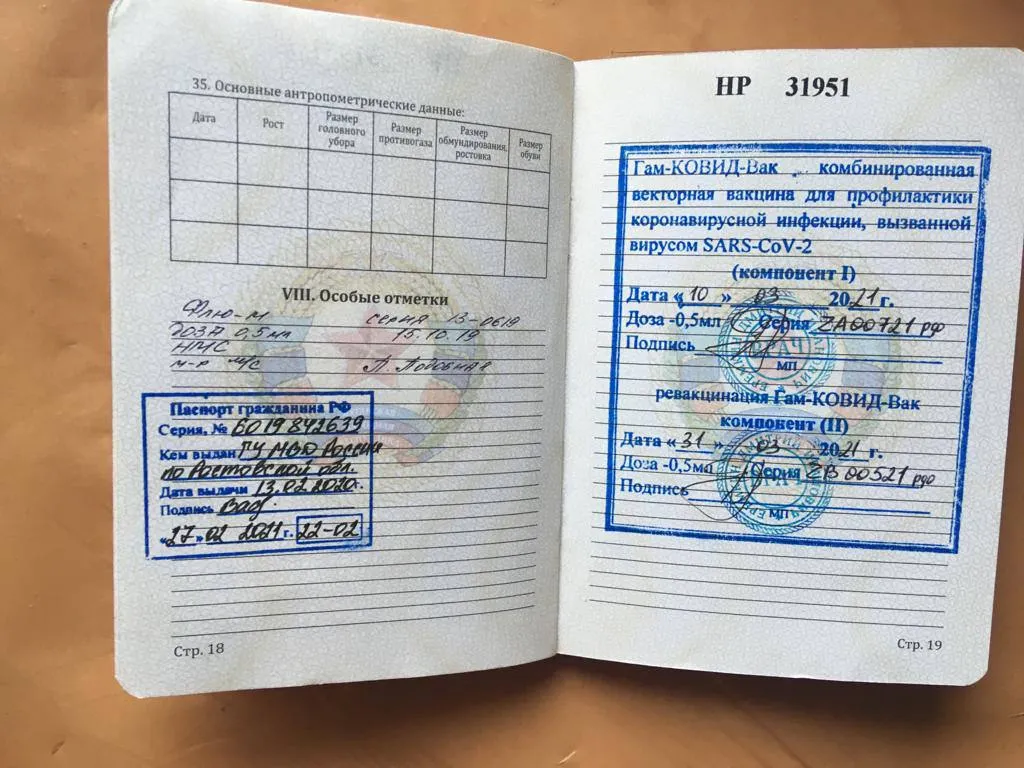 35. Основные антропометрические данные:
Дата Рост Размер головного убора Размер противогаза Размер обмундирования, ростовка Размер обуви
VIII. Особые отметки
Флю-М серия 13-0619
доза 0,5 мл 15.10.19
НМС
м-р м/с А. Подобная
Паспорт гражданина РФ
Серия, № 6019 842639
Кем выдан ГУ МВД России
по Ростовской обл.
Дата выдачи 13.02.2020г.
Подпись
«27» 02 2021 г. 22-02
Стр. 18
НР 31951
Гам-КОВИД-Вак комбинированная
векторная вакцина для профилактики
коронавирусной инфекции, вызванной
вирусом SARS-CoV-2
(компонент I)
Дата «10» 03 2021 г.
Доза -0,5мл Серия ZA00721 рдф
Подпись
ВРАЧ
МП
ревакцинация Гам-КОВИД-Вак
компонент (II)
Дата «31» 03 2021 г.
Доза -0,5мл Серия ZB00521 рдф
Подпись
МП
Стр. 19